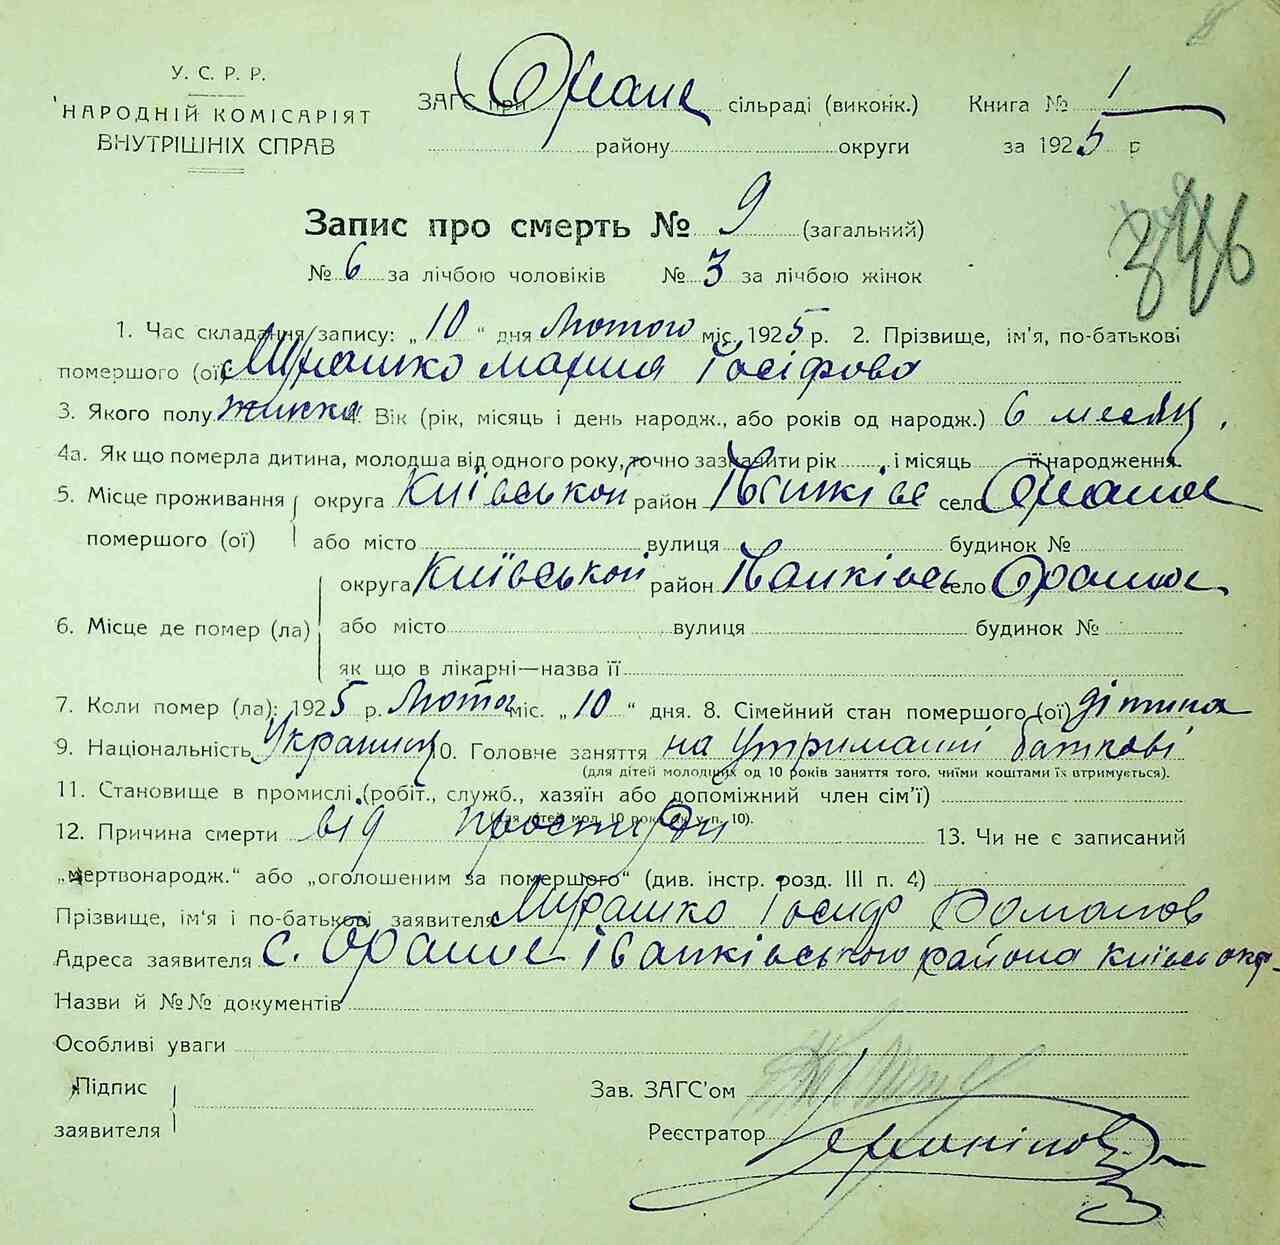 У. С. Р. Р.
НАРОДНІЙ КОМІСАРІЯТ
ВНУТРІШНІХ СПРАВ
ЗАГС при Оране сільраді (виконк.) Книга № 1
району округи за 1925 р
Запис про смерть № 9 (загальний)
№ 6 за лічбою чоловіків № 3 за лічбою жінок
1. Час складання запису: „10“ дня Лютого міс. 1925 р. 2. Прізвище, ім'я, по-батькові
помершого (ої) Мурашко Мария Іосіфова
3. Якого полу жинка 4. Вік (рік, місяць і день народж., або років од народж.) 6 месяц,
4а. Як що померла дитина, молодша від одного року, точно зазначити рік, і місяць її народження.
5. Місце проживання округа Київськой район село Ораное
помершого (ої) або місто вулиця будинок №
округа Київськой район Іванківсь село Ораное
6. Місце де помер (ла) або місто вулиця будинок №
як що в лікарні—назва її
7. Коли помер (ла): 1925 р. Лютого міс. „10“ дня. 8. Сімейний стан помершого (ої) дітина
9. Національність Украинц 10. Головне заняття на утриманні баткові
(для дітей молодших од 10 років заняття того, чиїми коштами їх втримується).
11. Становище в промислі (робіт., служб., хазяїн або допоміжний член сім'ї)
(для дітей мол. 10 років як у п. 10).
12. Причина смерти від простуди 13. Чи не є записаний
„мертвонародж.“ або „оголошеним за помершого“ (див. інстр. розд. III п. 4)
Прізвище, ім'я і по-батькові заявителя Мурашко Іосиф Романов
Адреса заявителя с. Ораное Іванківського района Київсь окр.
Назви й №№ документів
Особливі уваги
Підпис Зав. ЗАГС'ом
заявителя Реєстратор